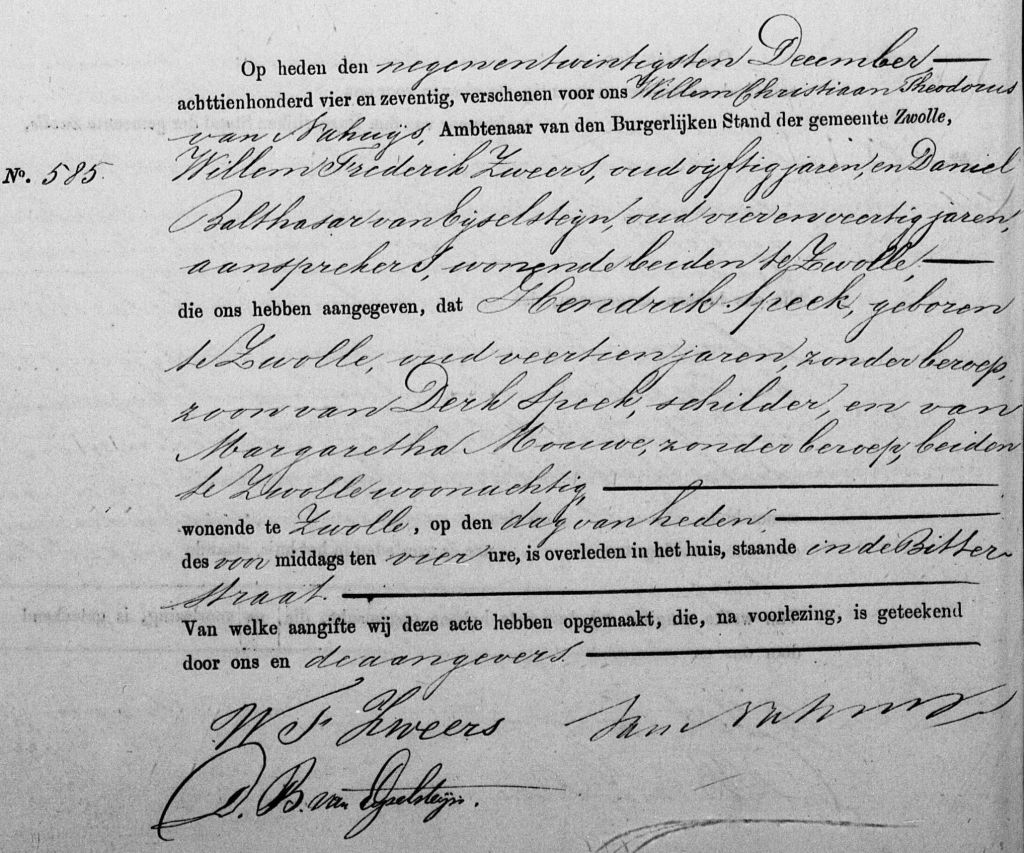 Op heden den negenentwintigsten December
achttienhonderd vier en zeventig, verschenen voor ons Willem Christiaan Theodorus
van Nahuijs, Ambtenaar van den Burgerlijken Stand der gemeente Zwolle,
No. 585. Willem Frederik Zweers, oud vijftig jaren, en Daniel
Balthasar van Eijselsteijn, oud vier en veertig jaren,
aansprekers, wonende beiden te Zwolle.
die ons hebben aangegeven, dat Hendrik Speek, geboren
te Zwolle, oud veertien jaren, zonder beroep,
zoon van Derk Speek, schilder, en van
Margaretha Mouwe, zonder beroep, beiden
te Zwolle woonachtig,
wonende te Zwolle, op den dag van heden,
des voor middags ten vier ure, is overleden in het huis, staande in de Bitter-
straat.
Van welke aangifte wij deze acte hebben opgemaakt, die, na voorlezing, is geteekend
door ons en de aangevers.
W F Zweers van Nahuijs
D. B. van Eijselsteijn.